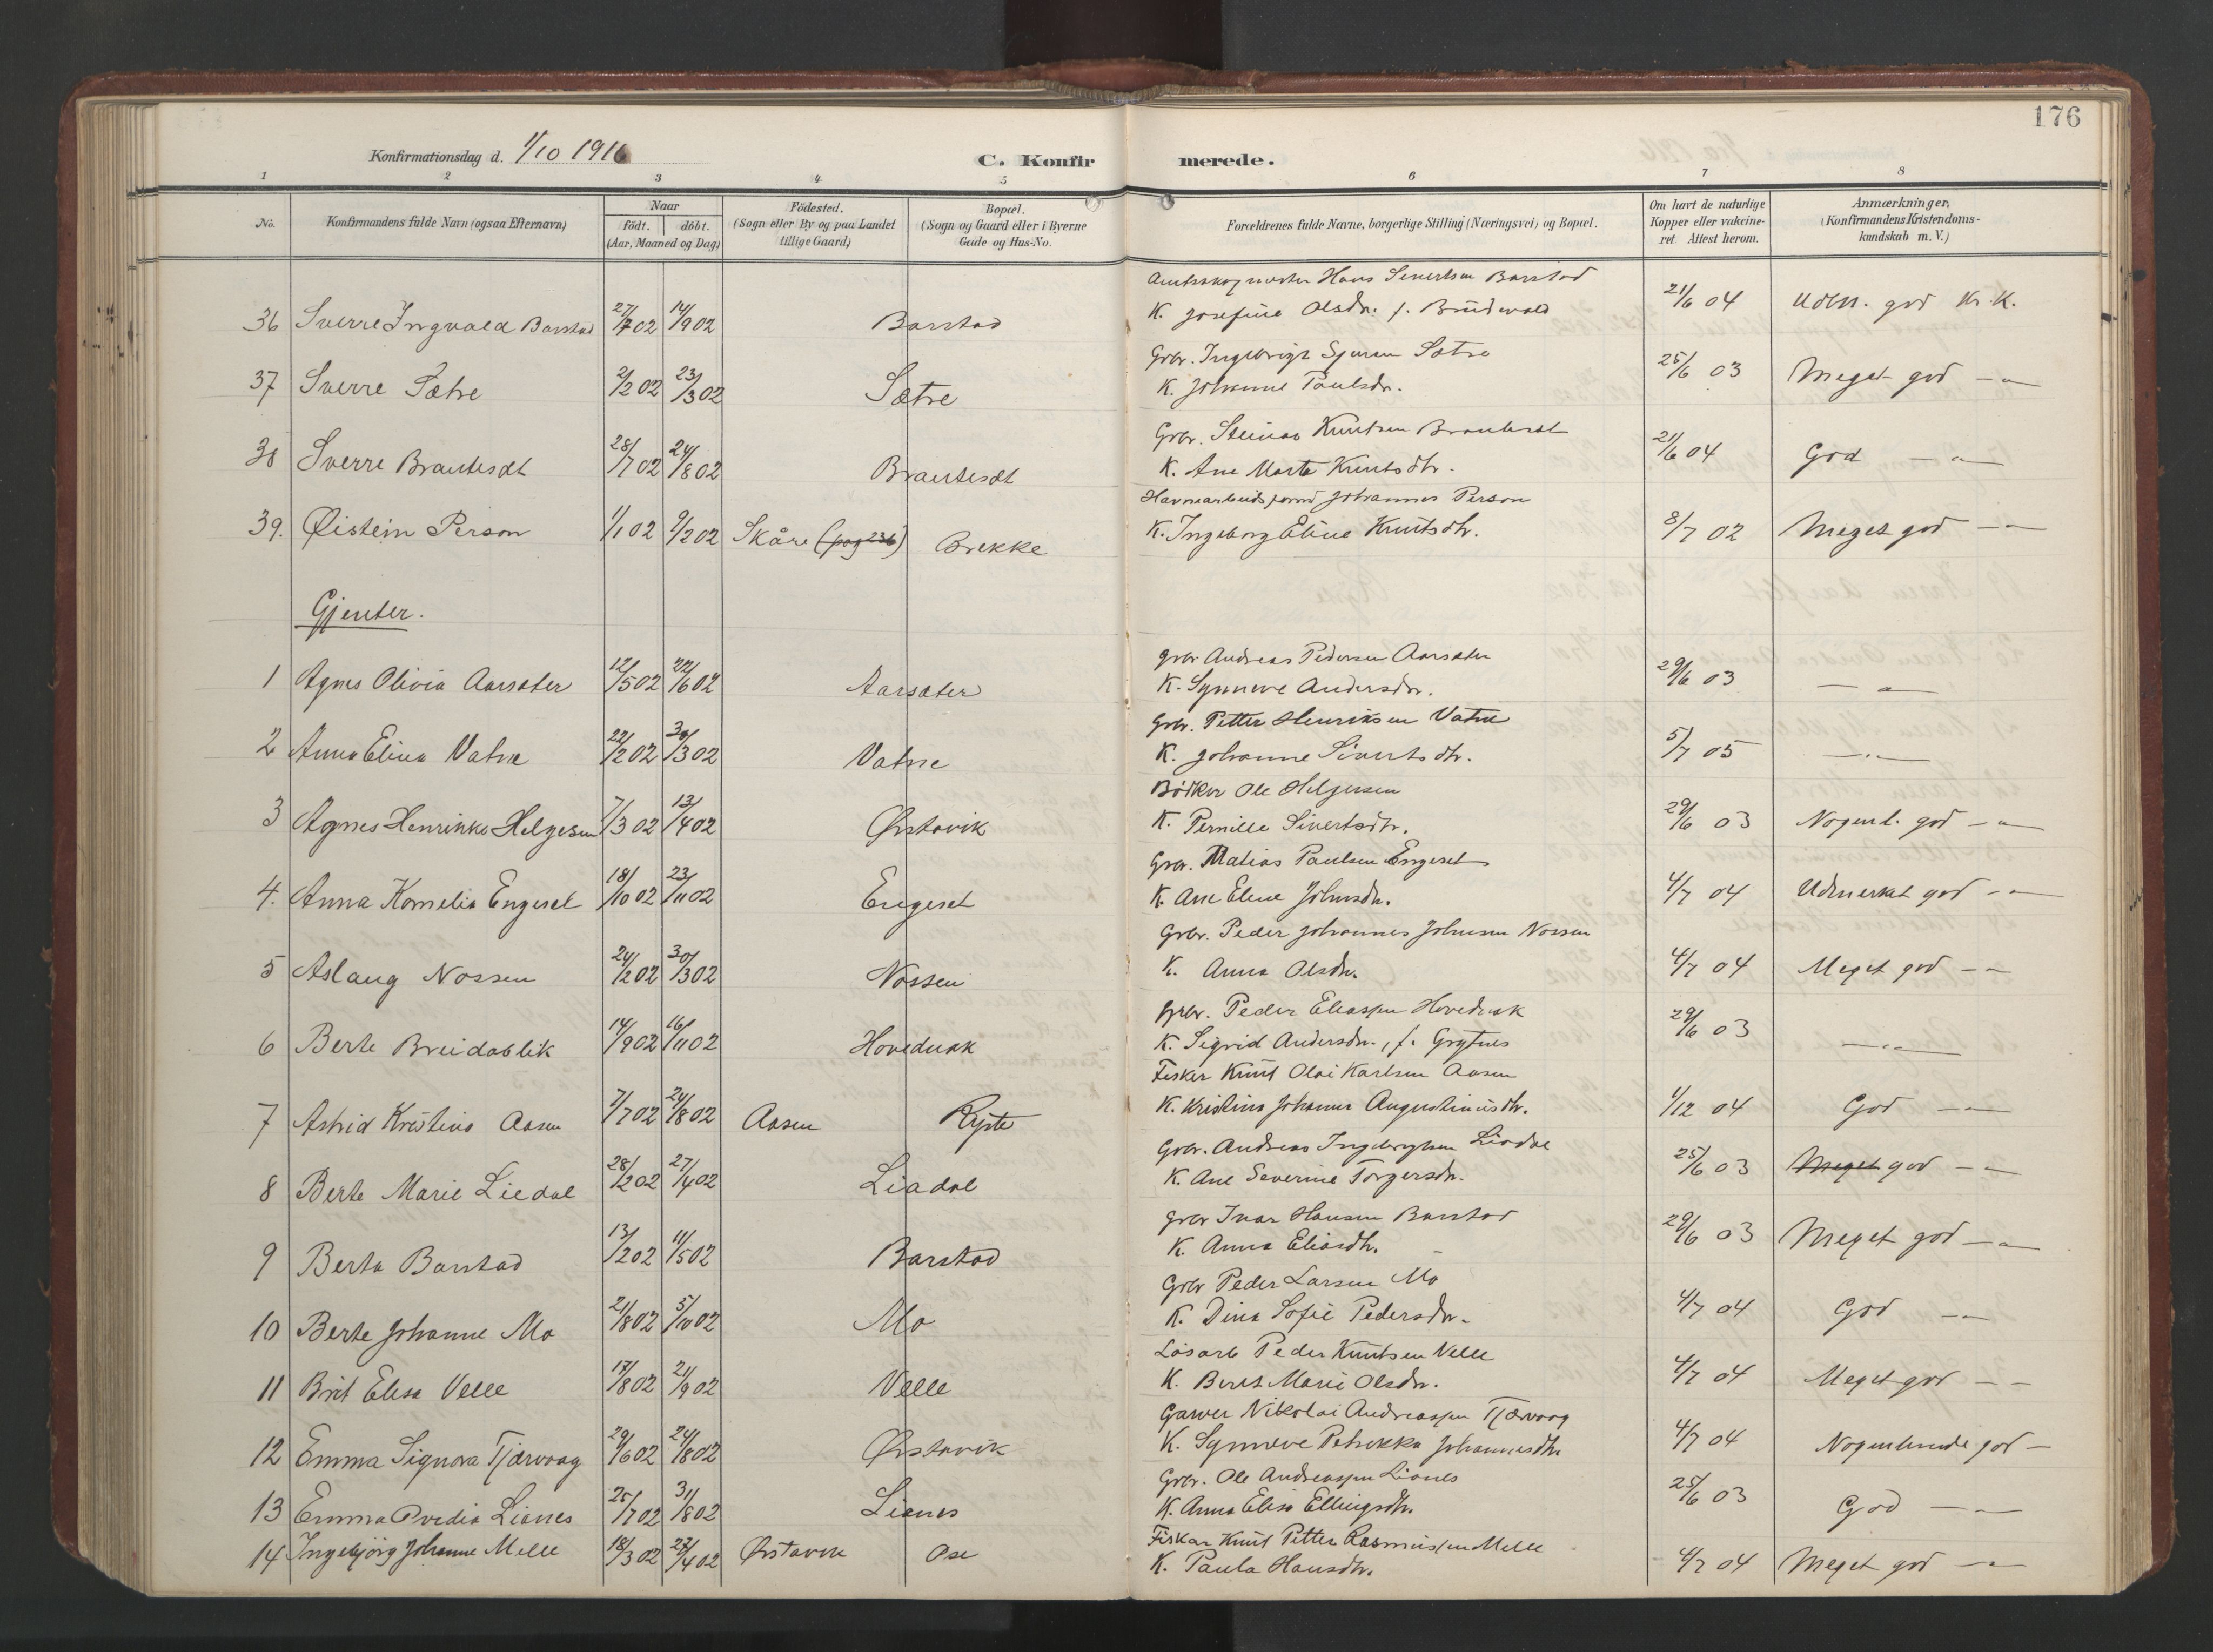 176
Konfirmationsdag d. 1/10 1916
C. Konfirmerede.
1 2 3 4 5 6 7 8
No. Konfirmandens fulde Navn (ogsaa Efternavn) Naar født. døbt. (Aar, Maaned og Dag) Födested. (Sogn eller By og paa Landet tillige Gaard) Bopæl. (Sogn og Gaard eller i Byerne Gade og Hus-No. Forældrenes fulde Navne, borgerlige Stilling (Næringsvei) og Bopæl. Om havt de naturlige Kopper eller vakcineret. Attest herom. Anmærkninger, (Konfirmandens Kristendomskundskab m. V.)
Hans Sivertsen Barstad
36 Sverre Ingvald Barstad 27/7 02 14/9 02 Barstad K. Josefine Olsdr. f. 21/6 04 Udm. god Kr.K.
Grbr. Ingebrigt Sjursen Sætre
37 Sverre Sætre 2/2 02 23/3 02 Sætre K. Johanne Paulsdr. 25/6 03 Meget god — " —
Grbr. Steinar Knutsen Brautesdt
38 Sverre Brautesdt 28/7 02 24/8 02 Brautesdt K. Ane Marte Knutsdtr. 21/6 04 God — " —
Havnearbeids Johannes Person
39. Øistein Person 1/1 02 9/2 02 Skåre (pag 236) Brekke K. Ingeborg Eline Knutsdtr. 8/7 02 Meget god — " —
Gjenter.
Grbr. Andreas Pedersen Aarsæter
1 Agnes Olivia Aarsæter 12/5 02 22/6 02 Aarsæter K. Synneve Andersdtr. 29/6 03 — " —
Grbr. Petter Henriksen Vatne
2 Anna Elina Vatne 22/2 02 30/3 02 Vatne K. Johanne Sivertsdtr. 5/7 05 — " —
Bødker Ole Helgesen
3 Agnes Henrikke Helgesen 7/3 02 13/4 02 Ørstavik K. Pernille Sivertsdtr. 29/6 03 Nogenl. god — " —
Grbr. Matias Paulsen Engeset
4. Anna Kornelia Engeset 18/10 02 23/11 02 Engeset K. Ane Eline Johnsdr. 4/7 04 Udmerket god — " —
Grbr. Peder Johannes Johnsen Nossen
5 Aslaug Nossen 24/2 02 30/3 02 Nossen K. Anna Olsdr. 4/7 04 Meget god — " —
Grbr. Peder Eliassen Hovednak
6 Berte Breidablik 14/9 02 16/11 02 Hovednak K. Sigrid Andersdr., f. Grytnes 29/6 03 — " —
Fisker Knut Olai Karlsen Aasen
7 Astrid Kristina Aasen 7/7 02 24/8 02 Aasen Ryste K. Kristina Johanna Augustinusdtr. 1/12 04 God — " —
Grbr. Andreas Ingebrigtsen Liadal
8 Berte Marie Liedal 28/2 02 27/4 02 Liadal K. Ane Severine Torgersdr. 25/6 03 Meget god — " —
Grbr Ivar Hansen Barstad
9 Berta Barstad 13/2 02 11/5 02 Barstad K. Anna Eliasdtr. 29/6 03 Meget god — " —
Grbr Peder Larsen Mo
10 Berte Johanne Mo 21/8 02 5/10 02 Mo K. Dina Sofie Pedersdr. 4/7 04 God — " —
Løsarb Peder Knutsen Velle
11 Brit Elisa Velle 17/8 02 21/9 02 Velle K. Beret Marie Olsdr. 4/7 04 Meget god — " —
Garver Nikolai Andreassen Tjærvaag
12 Emma Signora Tjærvaag 29/6 02 24/8 02 Ørstavik K. Synneve Petrikka Johannesdtr 4/7 04 Nogenlunde god —
Grbr. Ole Andreassen Lianes
13 Emma Ovedia Lianes 25/7 02 31/8 02 Lianes K. Anna Elisa Ellingsdtr. 25/6 03 God — " —
Fisker Knut Petter Rasmussen Melle
14 Ingebjörg Johanne Melle 18/3 02 27/4 02 Ørstavik Ose K. Paula Hansdtr. 4/7 04 Meget god — " —